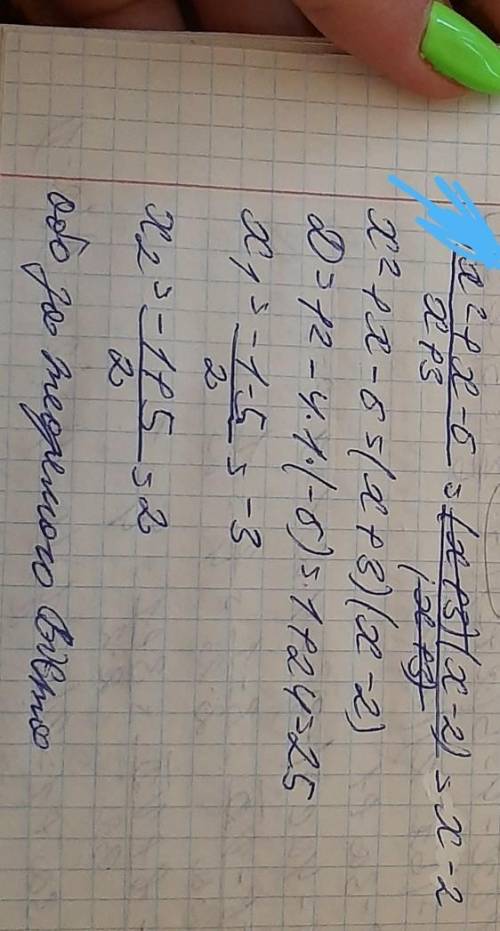 x²+x-6 / x+3 = (x+3)(x-2) / (x+3) = x-2
x²+x-6=(x+3)(x-2)
D=1²-4·1·(-6)=1+24=25
x₁=-1-5 / 2 = -3
x₂=-1+5 / 2 = 2
або за теоремою Вієта